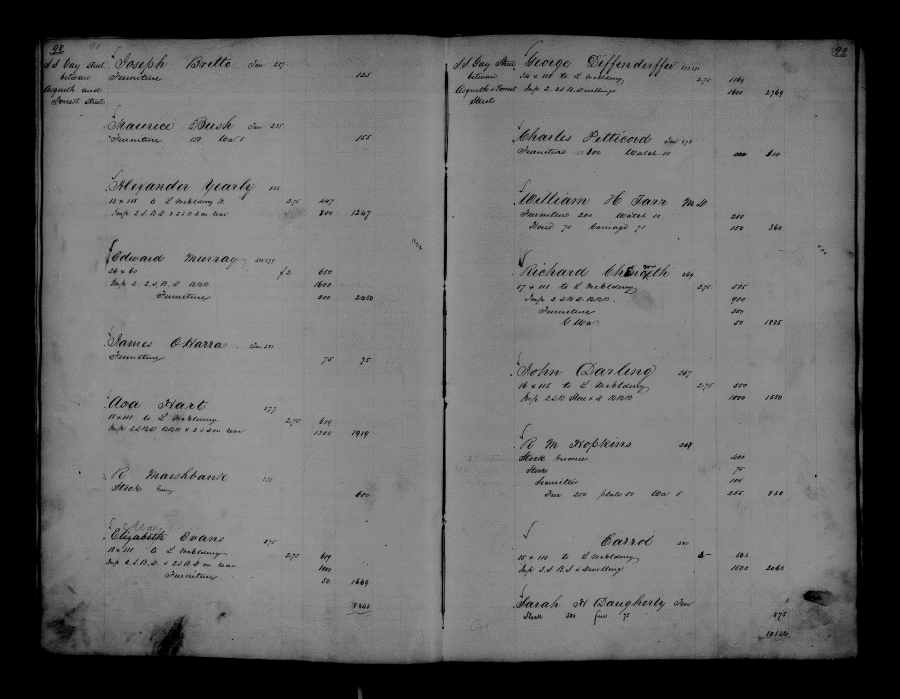 98
S S Gay Street
between
Asquith and
Forrest Street
Joseph Britto Ten 287
Furniture 125
Maurice Bush Ten 285
Furniture 150 Wa 5 155
Alexander Yearly 283
to L McElderry 275 447
Imp 2 S B D & 2 S B on rear 800 1247
Edward Murray 279
26 x 60 £2 650
Imp 2. 2 S. B. D B.R.B 1600
Furniture 200 2450
James O Harra Ten 281
Furniture 75 75
Asa Hart 277
18 x 115 to L McElderry 275 619
1300 1919
R Marshbank 277
Stock 600
Elizabeth Evans 275
18 x 115 to L McElderry 275 619
Imp 2. S. B. D. & 2 S B D on rear 1000
Furniture 50 1669
8240
99
S.S. Gay Street
between
Asquith & Forrest
Streets
George Diffenderffer
34 x 115 to L McElderry 275 1169
Imp 2. 2 S B. Dwellings 1600 2769
Charles Petticord Ten 273
Furniture 200 Watch 10 210
William H Tarr M D
Furniture 200 Watch 10 210
Horse 75 Carriage 75 150 360
Richard Chenoweth 269
17 x 115 to L McElderry 275 585
Imp 2 S B D. B.R.B. 900
Furniture 350
G Wa 50 1885
John Darling 267
16 x 115 to L McElderry 275 550
Imp 2 S B Store & D B.R.B 1000 1550
R M Hopkins 268
Stock Groceries 400
Stock 75
Securities 100
Fur 200 plate 50 Wa 5 255 830
Carrol 265
15 x 115 to L McElderry
Imp 3. S B S & Dwelling 1500
Sarah A Daugherty Ten
Stock 300 fur 75 375